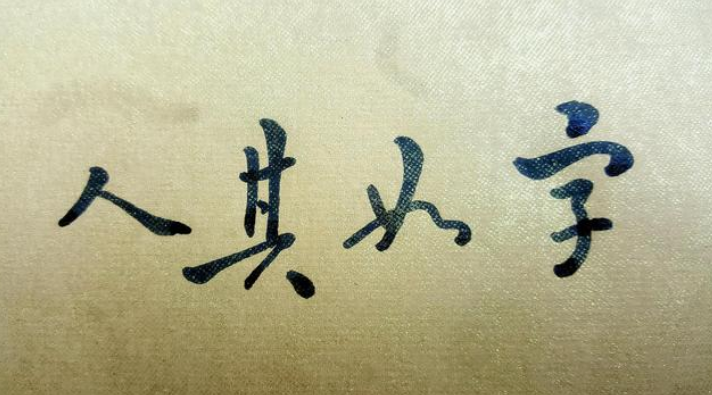 字如其人